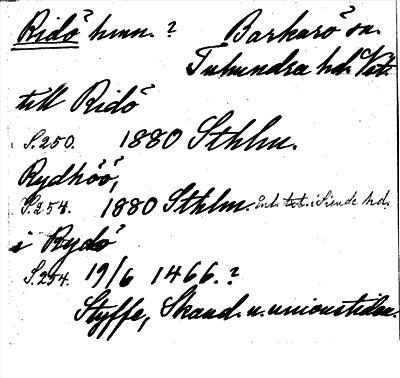 Ridö hmn.? Barkarö sn
Tuhundra hd. Vstm.
till Ridö
S.250. 1880 Sthlm.
Rydhöö,
S.254. 1880 Sthlm. Enl. txt. i Siende hd.
i Rydö
S.254. 19/6 1466.?
Styffe, Skand. u. unionstiden.